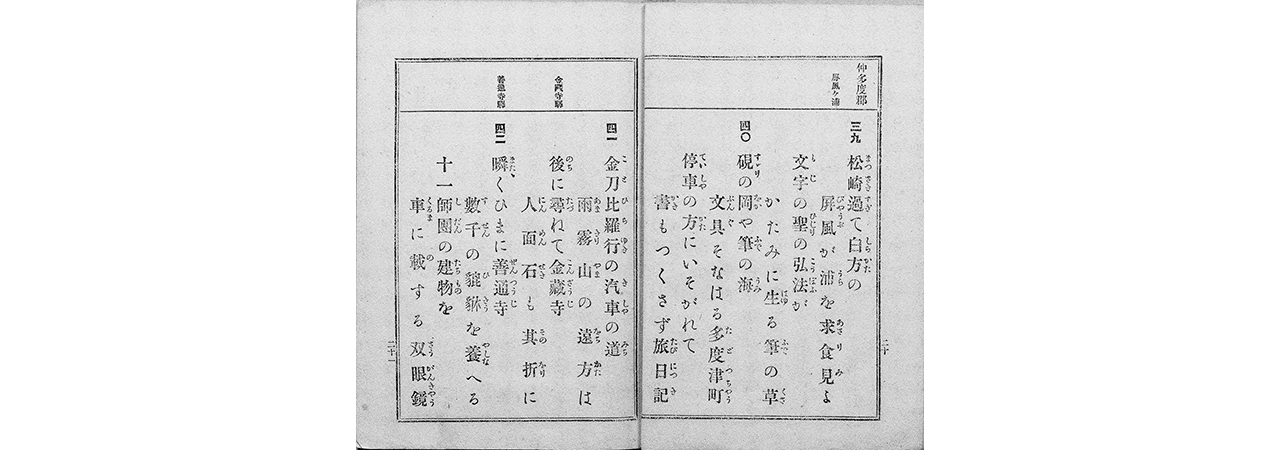 仲多度郡
屏風ヶ浦
三九
松崎過て白方の
屏風が浦を求食見よ
文字の聖の弘法が
かたみに生る筆の草
四〇
硯の岡や筆の海
文具そなはる多度津町
停車の方にいそがれて
書もつくさず旅日記
二十
金藏寺驛
善通寺驛
四一
金刀比羅行の汽車の道
雨霧山の遠方は
後に尋ねて金藏寺
人面石も其折に
四二
瞬くひまに善通寺
數千の貔貅を養へる
十一師團の建物を
車に載する双眼鏡
二十一